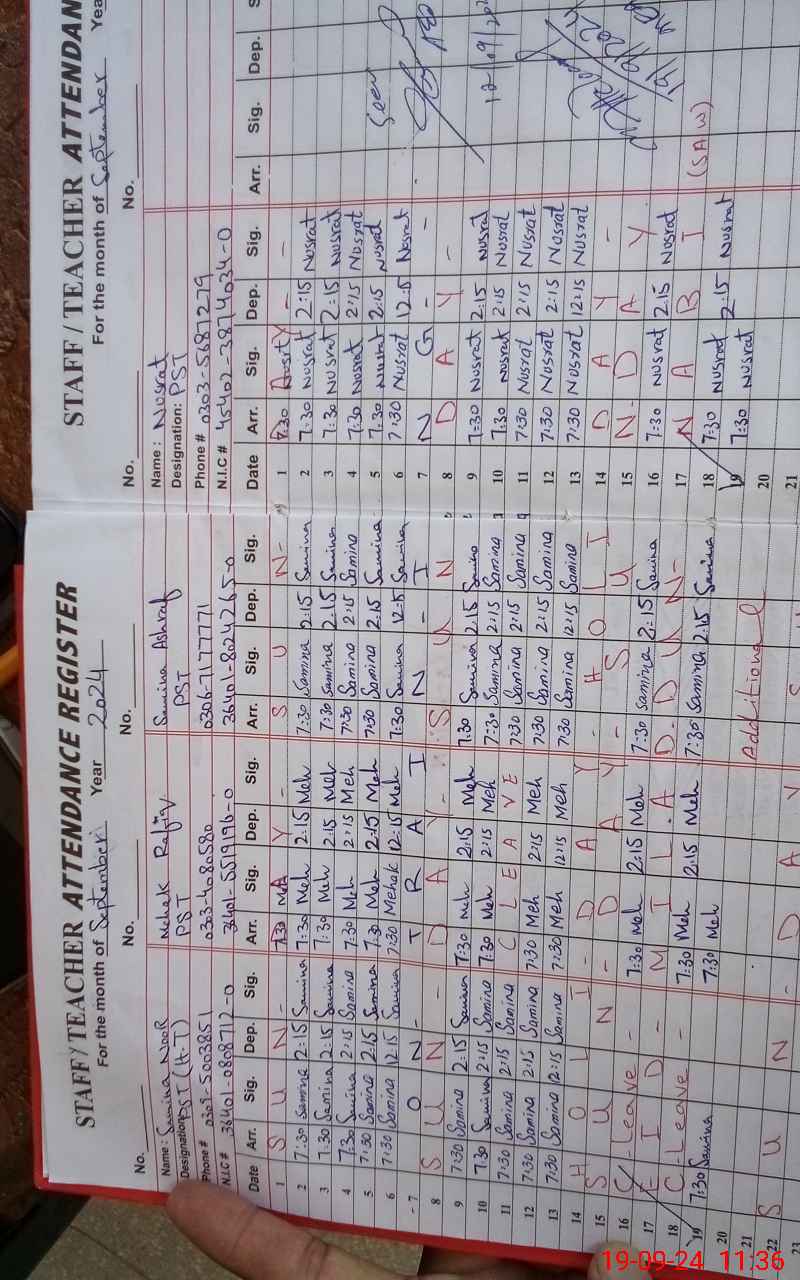 STAFF / TEACHER ATTENDANCE REGISTER
For the month of September Year 2024
No. No. No.
Name : Samina NooR Mehak Rafiq Samina Ashraf
Designation: PST (H-T) PST PST
Phone # 0309-5003851 0303-4080580 0306-7177771
N.I.C # 36401-0808712-0 36401-5519196-0 36401-8024265-0
Date Arr. Sig. Dep. Sig. Arr. Sig. Dep. Sig. Arr. Sig. Dep. Sig.
1 S U N - D A Y - S U N -
2 7:30 Samina 2:15 Samina 7:30 Meh 2:15 Meh 7:30 Samina 2:15 Samina
3 7:30 Samina 2:15 Samina 7:30 Meh 2:15 Meh 7:30 Samina 2:15 Samina
4 7:30 Samina 2:15 Samina 7:30 Meh 2:15 Meh 7:30 Samina 2:15 Samina
5 7:30 Samina 2:15 Samina 7:30 Meh 2:15 Meh 7:30 Samina 2:15 Samina
6 7:30 Samina 12:15 Samina 7:30 Mehak 12:15 Meh 7:30 Samina 12:15 Samina
7 O N - T R A I N - I
8 S U N - D A Y - S U N
9 7:30 Samina 2:15 Samina 7:30 Meh 2:15 Meh 7:30 Samina 2:15 Samina
10 7:30 Samina 2:15 Samina 7:30 Meh 2:15 Meh 7:30 Samina 2:15 Samina
11 7:30 Samina 2:15 Samina C LEAVE 7:30 Samina 2:15 Samina
12 7:30 Samina 2:15 Samina 7:30 Meh 2:15 Meh 7:30 Samina 2:15 Samina
13 7:30 Samina 12:15 Samina 7:30 Meh 12:15 Meh 7:30 Samina 12:15 Samina
14 H O L I - D A Y - H O L I
15 S U N - D A Y - S U
16 C - Leave - 7:30 Meh 2:15 Meh 7:30 Samina 2:15 Samina
17 E I D - M I L A D - D U N -
18 C - Leave - 7:30 Meh 2:15 Meh 7:30 Samina 2:15 Samina
19 7:30 Samina 7:30 Meh
20
21 Additional
22 S U N - D A Y S
23
STAFF / TEACHER ATTENDAN
For the month of September Yea
No. No.
Name : Nusrat
Designation: PST
Phone # 0303-5687279
N.I.C # 45402-3874034-0
Date Arr. Sig. Dep. Sig. Arr. Sig. Dep. S
1 D A Y - -
2 7:30 Nusrat 2:15 Nusrat
3 7:30 Nusrat 2:15 Nusrat
4 7:30 Nusrat 2:15 Nusrat
5 7:30 Nusrat 2:15 Nusrat Seen
6 7:30 Nusrat 12:15 Nusrat
7 N G - -
8 D A Y -
9 7:30 Nusrat 2:15 Nusrat
10 7:30 Nusrat 2:15 Nusrat
11 7:30 Nusrat 2:15 Nusrat
12 7:30 Nusrat 2:15 Nusrat
13 7:30 Nusrat 12:15 Nusrat
14 D A Y -
15 N - D A Y
16 7:30 Nusrat 2:15 Nusrat
17 N A B I (SAW)
18 7:30 Nusrat 2:15 Nusrat
19 7:30 Nusrat
20
21
19-09-24 11:36